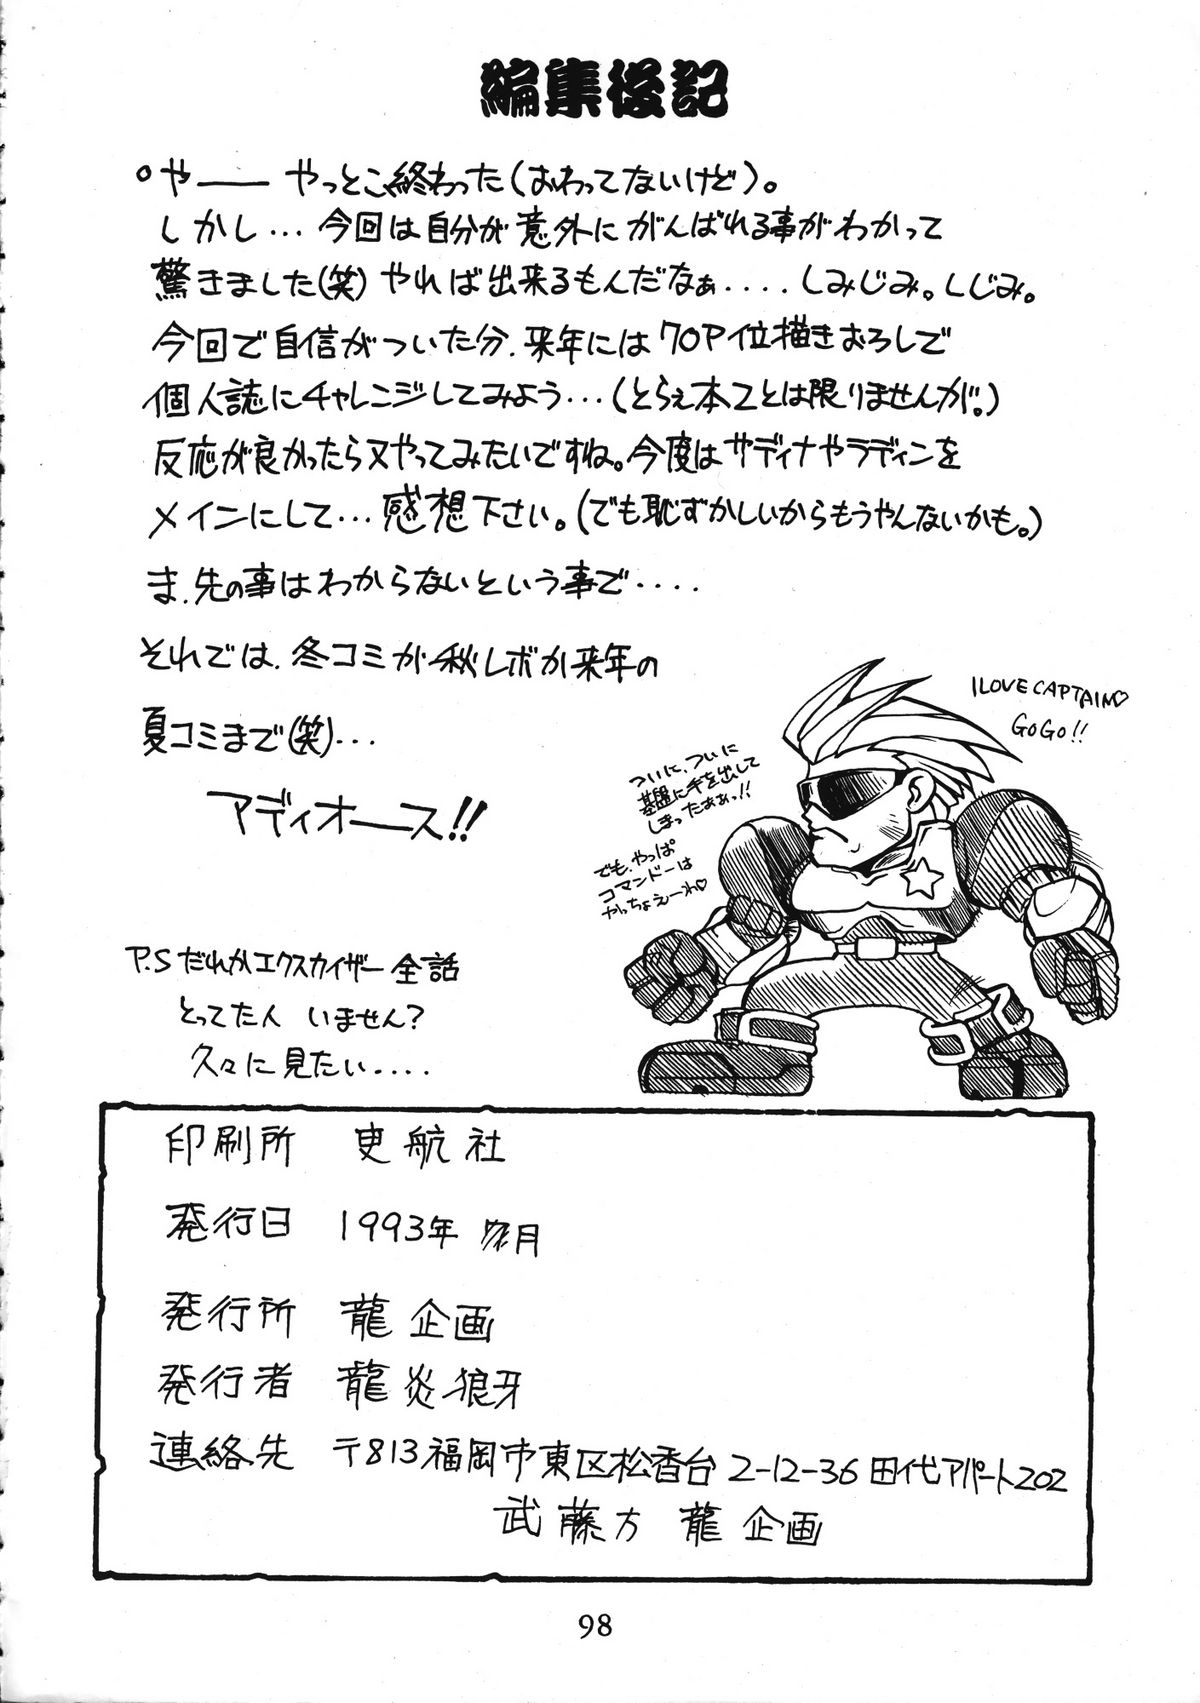 編集後記
°やーー やっとこ終わった(おわってないけど)。
しかし…今回は自分が意外にがんばれる事がわかって
驚きました(笑)やれば出来るもんだなぁ....しみじみ。しじみ。
今回で自信がついた分.来年には70P位描きおろしで
個人誌にチャレンジしてみよう…(とらぇ本2とは限りませんが。)
反応が良かったら又やってみたいですね。今度はサディナやラディンを
メインにして…感想下さい。(でも恥ずかしいからもうやんないかも。)
ま.先の事はわからないという事で....
それでは.冬コミが秋レボか来年の
夏コミまで(笑)…
アディオース!!
I LOVE CAPTAIN♡
GOGO!!
ついに、ついに
基盤に手を出して
しまったぁぁっ!!
でも.やっぱ
コマンドーは
やっちょえーわ♡
P.S だれかエクスカイザー全話
とってた人 いません?
久々に見たい....
印刷所 史航社
発行日 1993年 月
発行所 龍企画
発行者 龍炎狼牙
連絡先 〒813福岡市東区松香台2-12-36田代アパート202
武藤方 龍企画
98